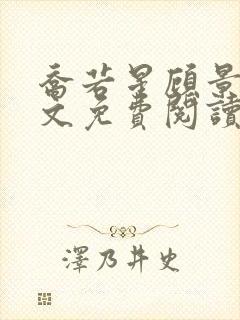 喬若星顧景
文免費閱讀
澤乃井史